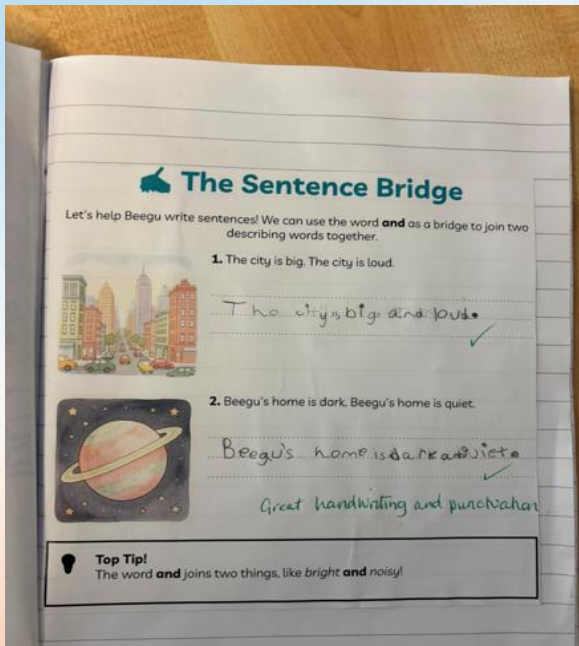 The Sentence Bridge
Let's help Beegu write sentences! We can use the word and as a bridge to join two
describing words together.
1. The city is big. The city is loud.
The city is big and loud.
2. Beegu's home is dark. Beegu's home is quiet.
Beegu's home is dark
Great handwriting and punctuation
Top Tip!
The word and joins two things, like bright and noisy!